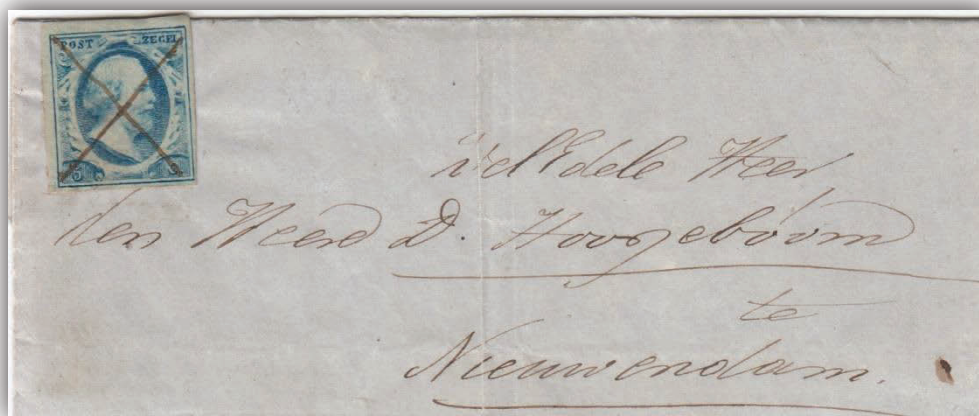 POST ZEGEL
5 C
WelEdele Heer
den Heere D. Hoogeboom
te
Nieuwendam.